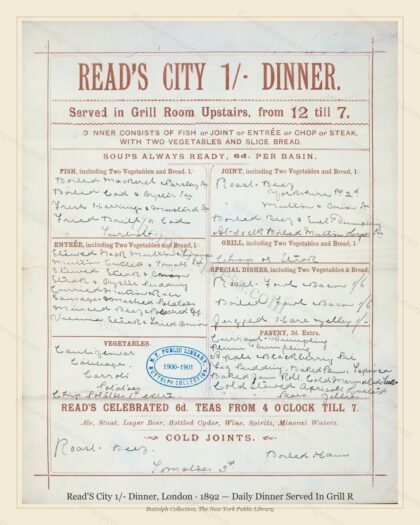 READ'S CITY 1/- DINNER.
Served in Grill Room Upstairs, from 12 till 7.
NNER CONSISTS OF FISH OR JOINT OR ENTRÉE OR CHOP OR STEAK,
WITH TWO VEGETABLES AND SLICE BREAD.
SOUPS ALWAYS READY, 6d. PER BASIN.
FISH, including Two Vegetables and Bread, 1/
Boiled Mackerel & Parsley
Boiled Cod & Oyster
Fresh Herrings & Mustard
Fried Brill & Cod
Turbot
ENTRÉE, including Two Vegetables and Bread, 1/
Stewed Neck Mutton
Mutton Cutlets & Tomato
Stewed Steak &
Steak & Oyster Pudding
Curried Mutton & Rice
Sausages & Mashed Potatoes
Minced Beef & Poached
Vienna Steak & Fried Onion
VEGETABLES.
Cauliflower
Cabbage
Carrots
Potatoes
Chip Potatoes extra
JOINT, including Two Vegetables and Bread, 1/
Roast Beef
Yorkshire
Mutton & Onion
Boiled Beef & Suet Dumpling
Boiled Mutton
GRILL, including Two Vegetables and Bread, 1/
Chop or Steak
SPECIAL DISHES, including Two Vegetables & Bread,
Roast Fowl Bacon 1/6
Boiled Fowl Bacon 1/6
Jugged Hare & Jelly 1/
PASTRY, 3d. Extra.
Currant Dumpling
Plum Dumpling
Apple & Blackberry Pie
Fig Pudding, Baked Tapioca
Baked Jam Roll, Cold Marmalade
Cold Stewed Apricots Custard
Pears Jellies
N.Y. PUBLIC LIBRARY
1900-1901
BUTTOLPH COLLECTION.
READ'S CELEBRATED 6d. TEAS FROM 4 O'CLOCK TILL 7.
Ale, Stout, Lager Beer, Bottled Cyder, Wine, Spirits, Mineral Waters.
COLD JOINTS.
Roast Beef
Boiled Ham
Tomatoes 3d
Read'S City 1/- Dinner, London · 1892 — Daily Dinner Served In Grill R
Buttolph Collection, The New York Public Library